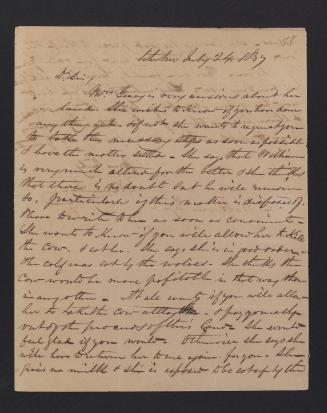 July 24 1837
Dr Sir,
Mrs is very anxious about her
land. She wishes to know if you have done
any thing yet & if not she wants to request you
to take the necessary steps as soon as possible
& have the matter settled. She says that William
is very much altered for the better & she thinks
that there is no doubt but he will remain
so, particularly if this matter is disposed of.
Please to write to her as soon as convenient.
She wants to know if you will allow her to take
the cow. & eat her. She says she is in good order
the calf was eat by the wolves. She thinks the
cow would be more profitable in that way than
in any other. wants if you will allow
her to take the cow & pay you
out of the proceeds of this land. She would
feel glad if you would. Otherwise she says she
will have to return her to me again for you. She
gives no milk & she is exposed to be eat up by the